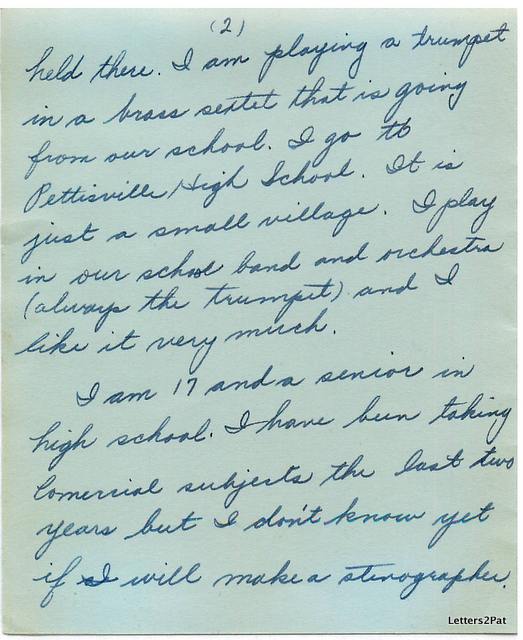 (2)
held there. I am playing a trumpet
in a brass sextet that is going
from our school. I go to
Pettisville High School. It is
just a small village. I play
in our school band and orchestra
(always the trumpet) and I
like it very much.
I am 17 and a senior in
high school. I have been taking
Comercial subjects the last two
years but I don't know yet
if I will make a stenographer.
Letters2Pat